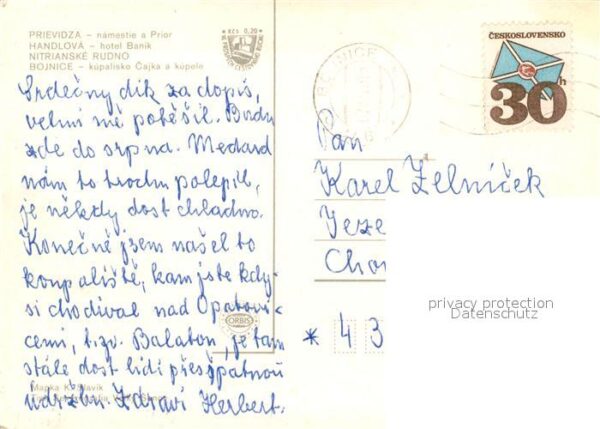 PRIEVIDZA – námestie a Prior
HANDLOVÁ – hotel Baník
NITRIANSKÉ RUDNO
BOJNICE – kúpalisko Čajka a kúpele
Kčs 0,20
Srdečný dík za dopis,
velmi mě potěšil. Budu
zde do srpna. Medard
nám to trochu polepil,
je někdy dost chladno.
Konečně jsem našel to
koupaliště, kam jste kdy-
si chodíval nad Opatovi-
cemi, t.zv. Balaton, je tam
stále dost lidí přes špatnou
údržbu. Zdraví Herbert.
ORBIS
ČESKOSLOVENSKO
30h
Pan
Karel Zelníček
Jeze
Cho
* 43
privacy protection
Datenschutz